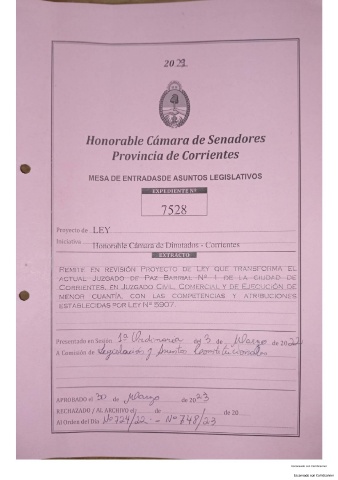 2022
Honorable Cámara de Senadores
Provincia de Corrientes
MESA DE ENTRADASDE ASUNTOS LEGISLATIVOS
EXPEDIENTE Nº
7528
Proyecto de LEY
Iniciativa Honorable Cámara de Diputados - Corrientes
EXTRACTO
REMITE EN REVISIÓN PROYECTO DE LEY QUE TRANSFORMA EL
ACTUAL JUZGADO DE PAZ BARRIAL Nº 1 DE LA CIUDAD DE
CORRIENTES, EN JUZGADO CIVIL, COMERCIAL Y DE EJECUCIÓN DE
MENOR CUANTÍA, CON LAS COMPETENCIAS Y ATRIBUCIONES
ESTABLECIDAS POR LEY Nº 5907.
Presentado en Sesión 1º Ordinaria el 3 de Marzo de 2022
A Comisión de Legislación y Asuntos Constitucionales
APROBADO el 30 de Marzo de 2023
RECHAZADO / AL ARCHIVO el de de 20
Al Orden del Día Nº 724/22 - Nº 748/23